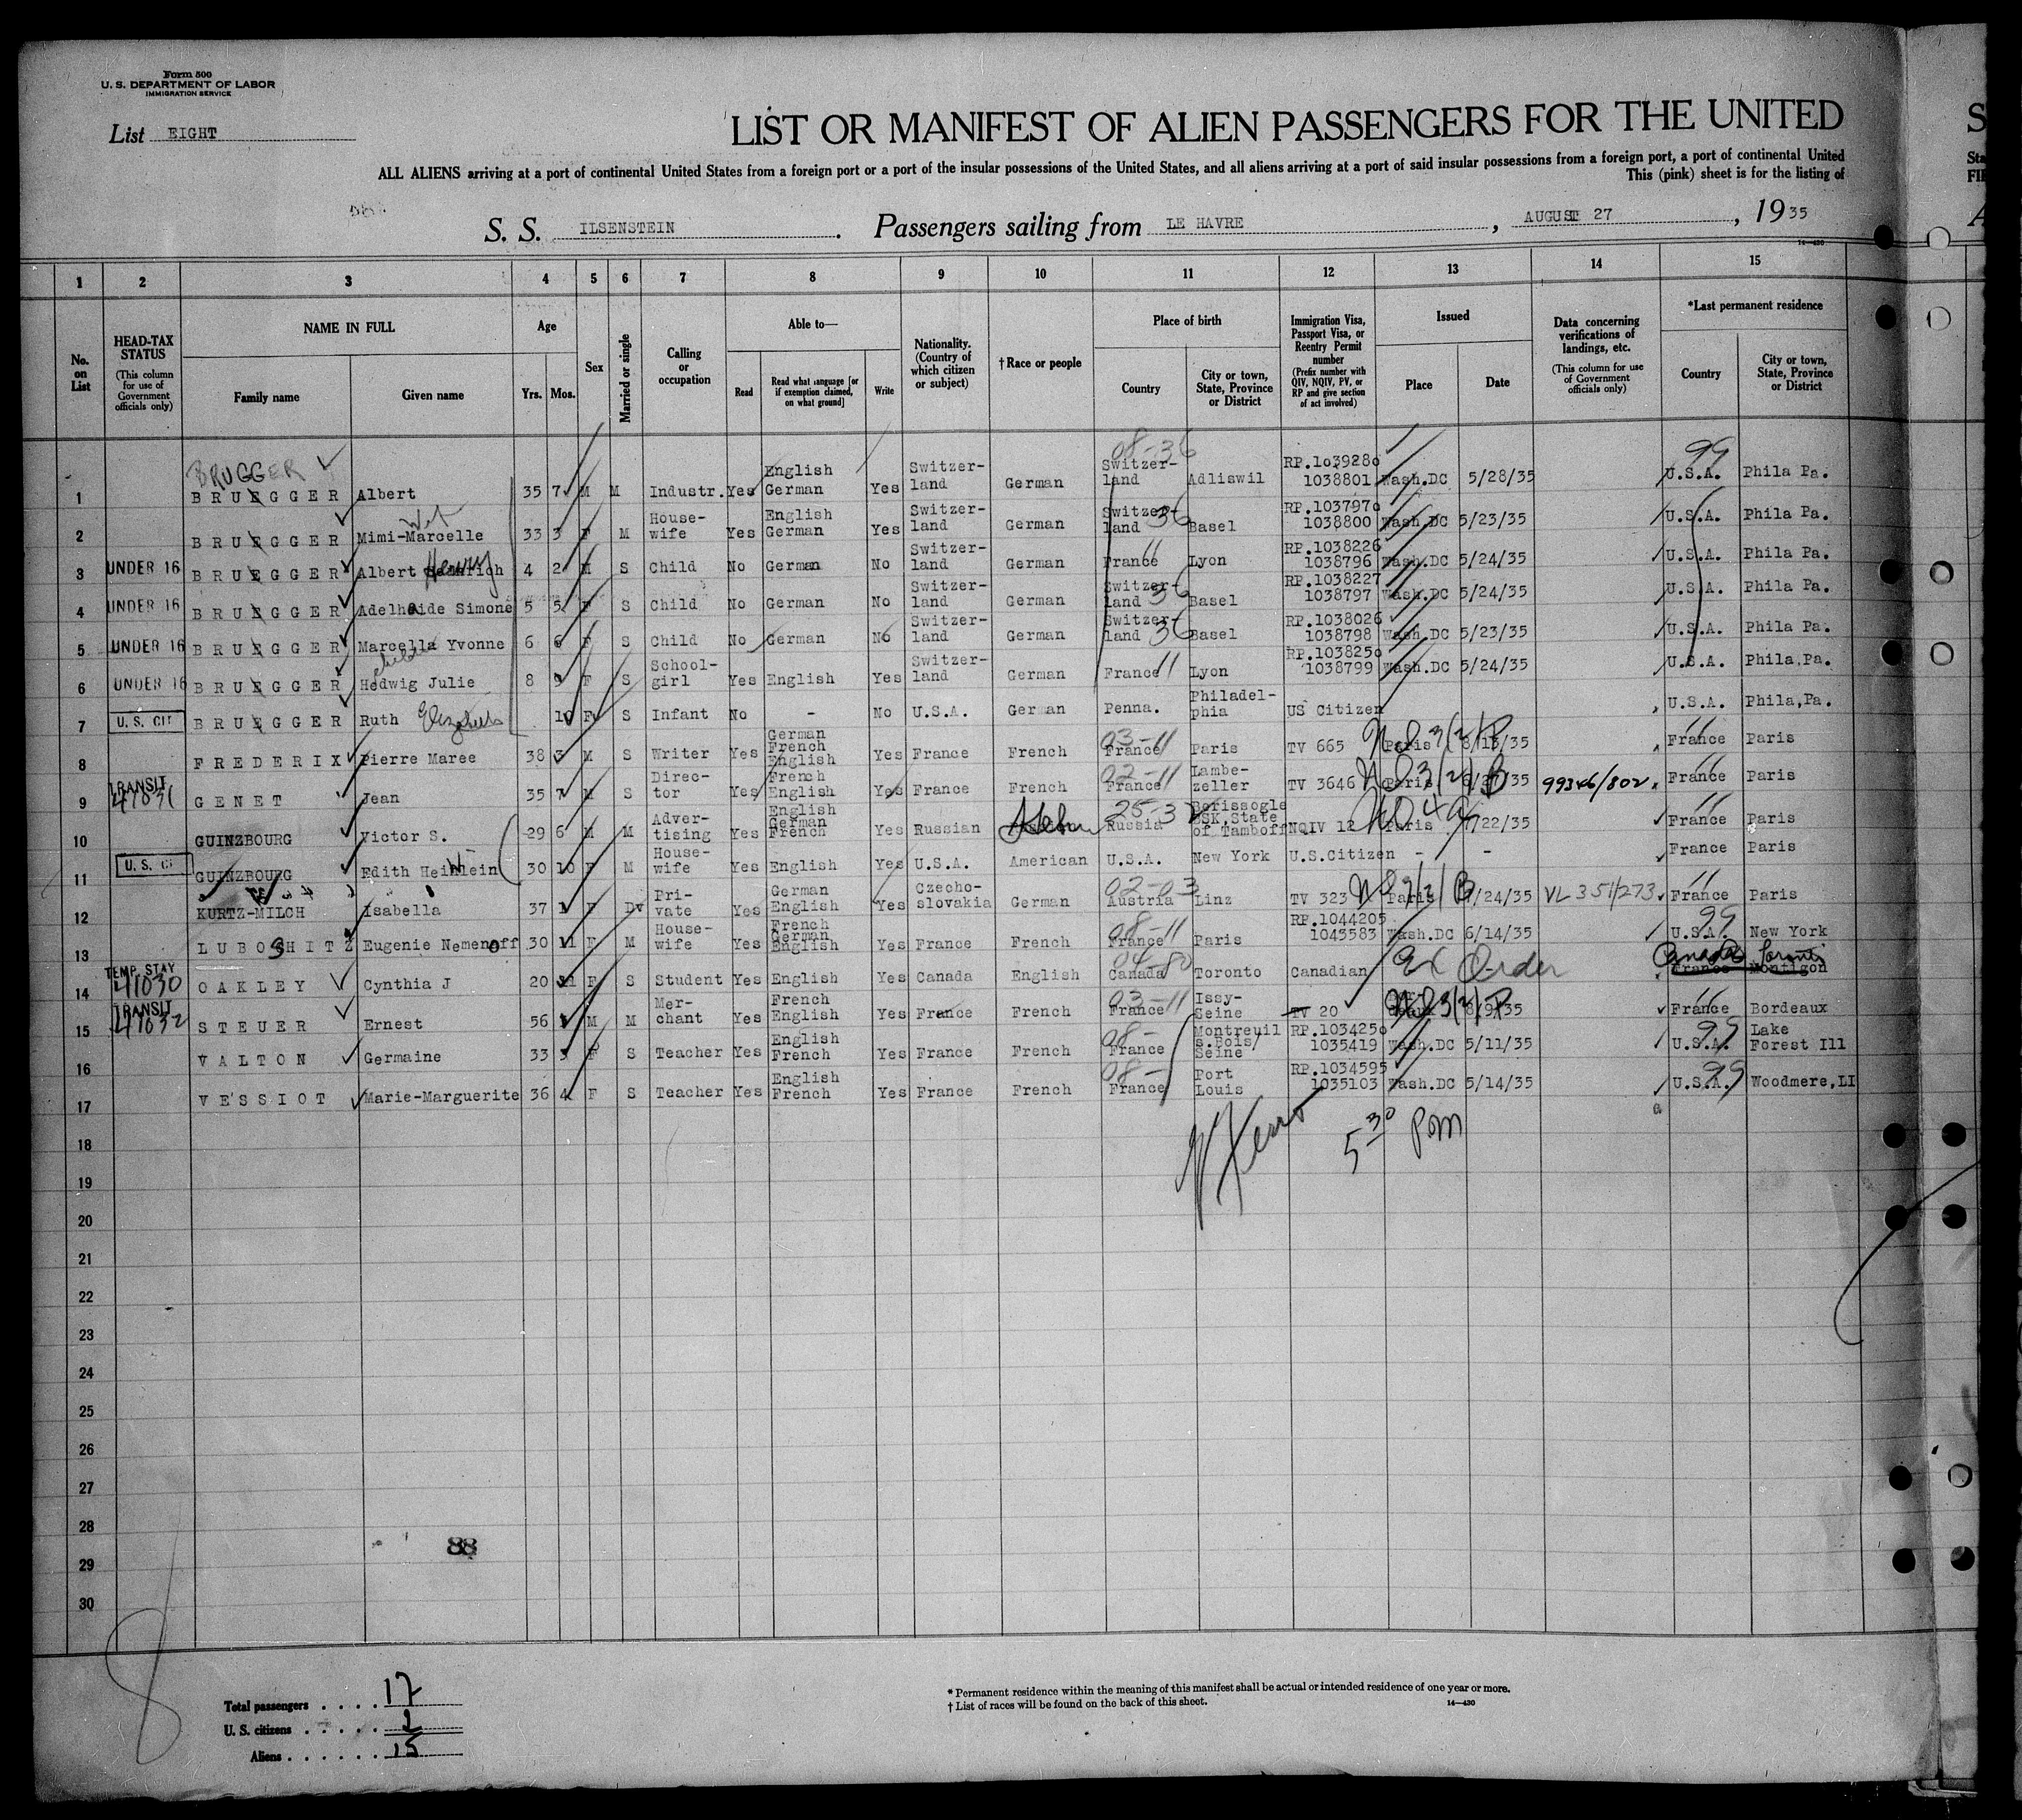 Form 500
U. S. DEPARTMENT OF LABOR
IMMIGRATION SERVICE
List EIGHT
LIST OR MANIFEST OF ALIEN PASSENGERS FOR THE UNITED
ALL ALIENS arriving at a port of continental United States from a foreign port or a port of the insular possessions of the United States, and all aliens arriving at a port of said insular possessions from a foreign port, a port of continental United
This (pink) sheet is for the listing of
S. S. ILSENSTEIN. Passengers sailing from LE HAVRE, AUGUST 27, 1935
14—430
1 2 3 4 5 6 7 8 9 10 11 12 13 14 15
No. on List
HEAD-TAX STATUS (This column for use of Government officials only)
NAME IN FULL
Family name Given name
Age
Yrs. Mos.
Sex
Married or single
Calling or occupation
Able to—
Read
Read what language [or if exemption claimed, on what ground]
Write
Nationality. (Country of which citizen or subject)
†Race or people
Place of birth
Country
City or town, State, Province or District
Immigration Visa, Passport Visa, or Reentry Permit number (Prefix number with QIV, NQIV, PV, or RP and give section of act involved)
Issued
Place Date
Data concerning verifications of landings, etc. (This column for use of Government officials only)
*Last permanent residence
Country
City or town, State, Province or District
BRUGGER
08-36
99
1 BRUEGGER Albert 35 7 M M Industr. Yes English German Yes Switzer-land German Switzer-land Adliswil RP.1039280 1038801 Wash.DC 5/28/35 U.S.A. Phila Pa.
2 BRUEGGER Mimi-Marcelle 33 3 F M House-wife Yes English German Yes Switzer-land German Switzer-land 36 Basel RP.1037970 1038800 Wash.DC 5/23/35 U.S.A. Phila Pa.
3 UNDER 16 BRUEGGER Albert Henry 4 2 M S Child No German No Switzer-land German France 11 Lyon RP.1038226 1038796 Wash.DC 5/24/35 U.S.A. Phila Pa.
4 UNDER 16 BRUEGGER Adelheide Simone 5 5 F S Child No German No Switzer-land German Switzer-land 36 Basel RP.1038227 1038797 Wash.DC 5/24/35 U.S.A. Phila Pa.
5 UNDER 16 BRUEGGER Marcella Yvonne 6 6 F S Child No German No Switzer-land German Switzer-land 36 Basel RP.1038026 1038798 Wash.DC 5/23/35 U.S.A. Phila Pa.
6 UNDER 16 BRUEGGER Hedwig Julie 8 9 F S School-girl Yes English Yes Switzer-land German France 11 Lyon RP.1038250 1038799 Wash.DC 5/24/35 U.S.A. Phila,Pa.
7 U.S. CIT BRUEGGER Ruth Elizabeth 10 F S Infant No - No U.S.A. German Penna. Philadel-phia US Citizen U.S.A. Phila,Pa.
8 FREDERIX Pierre Maree 38 3 M S Writer Yes German French English Yes France French 03-11 France Paris TV 665 Paris France 11 Paris
9 TRANSIT 41031 GENET Jean 35 7 M S Direc-tor Yes French English Yes France French 02-11 France Lambe-zeller TV 3646 Paris 99346/802 France 11 Paris
10 GUINZBOURG Victor S. 29 6 M M Adver-tising Yes English German French Yes Russian Hebrew 25-32 Russia Borissogle BSK,State of Tamboff NQIV 12 Paris 7/22/35 France 11 Paris
11 U.S. CI GUINZBOURG Edith Heinlein 30 10 F M House-wife Yes English Yes U.S.A. American U.S.A. New York U.S.Citizen - - France Paris
12 KURTZ-MILCH Isabella 37 1 F Dv Pri-vate Yes German English Yes Czecho-slovakia German 02-03 Austria Linz TV 323 Paris 7/24/35 VL 351/273 France 11 Paris
13 LUBOSHITZ Eugenie Nemenoff 30 11 F M House-wife Yes French German English Yes France French 08-11 France Paris RP.1044205 1045583 Wash.DC 6/14/35 U.S.A. 99 New York
14 TEMP. STAY 41030 OAKLEY Cynthia J 20 11 F S Student Yes English Yes Canada English 04-80 Canada Toronto Canadian Ex Order Canada Toronto France Montigon
15 TRANSIT 41032 STEUER Ernest 56 1 M M Mer-chant Yes French English Yes France French 03-11 France Issy-Seine TV 20 8/9/35 France 11 Bordeaux
16 VALTON Germaine 33 3 F S Teacher Yes English French Yes France French 08- France Montreuil s.Bois/Seine RP.1034250 1035419 Wash.DC 5/11/35 U.S.A. 99 Lake Forest Ill
17 VESSIOT Marie-Marguerite 36 4 F S Teacher Yes English French Yes France French 08- France Port Louis RP.1034595 1035103 Wash.DC 5/14/35 U.S.A. 99 Woodmere,LI
5 30 PM
18
19
20
21
22
23
24
25
26
27
28
88
29
30
8
Total passengers . . . . 17
U. S. citizens . . . . . 2
Aliens . . . . . . 15
* Permanent residence within the meaning of this manifest shall be actual or intended residence of one year or more.
† List of races will be found on the back of this sheet. 14—430